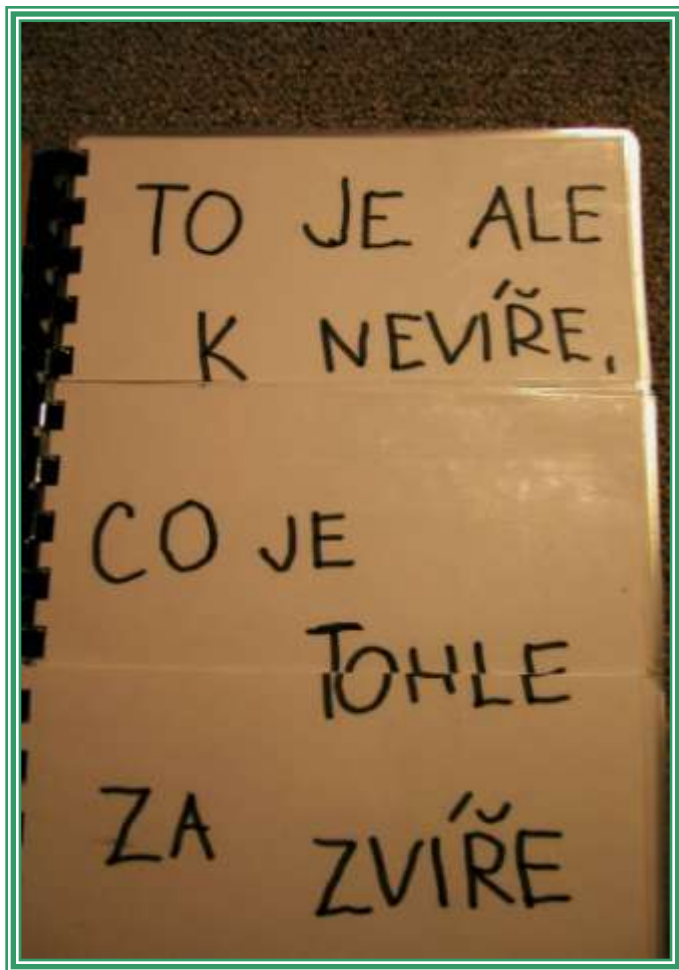 TO JE ALE
K NEVÍŘE,
CO JE
TOHLE
ZA ZVÍŘE